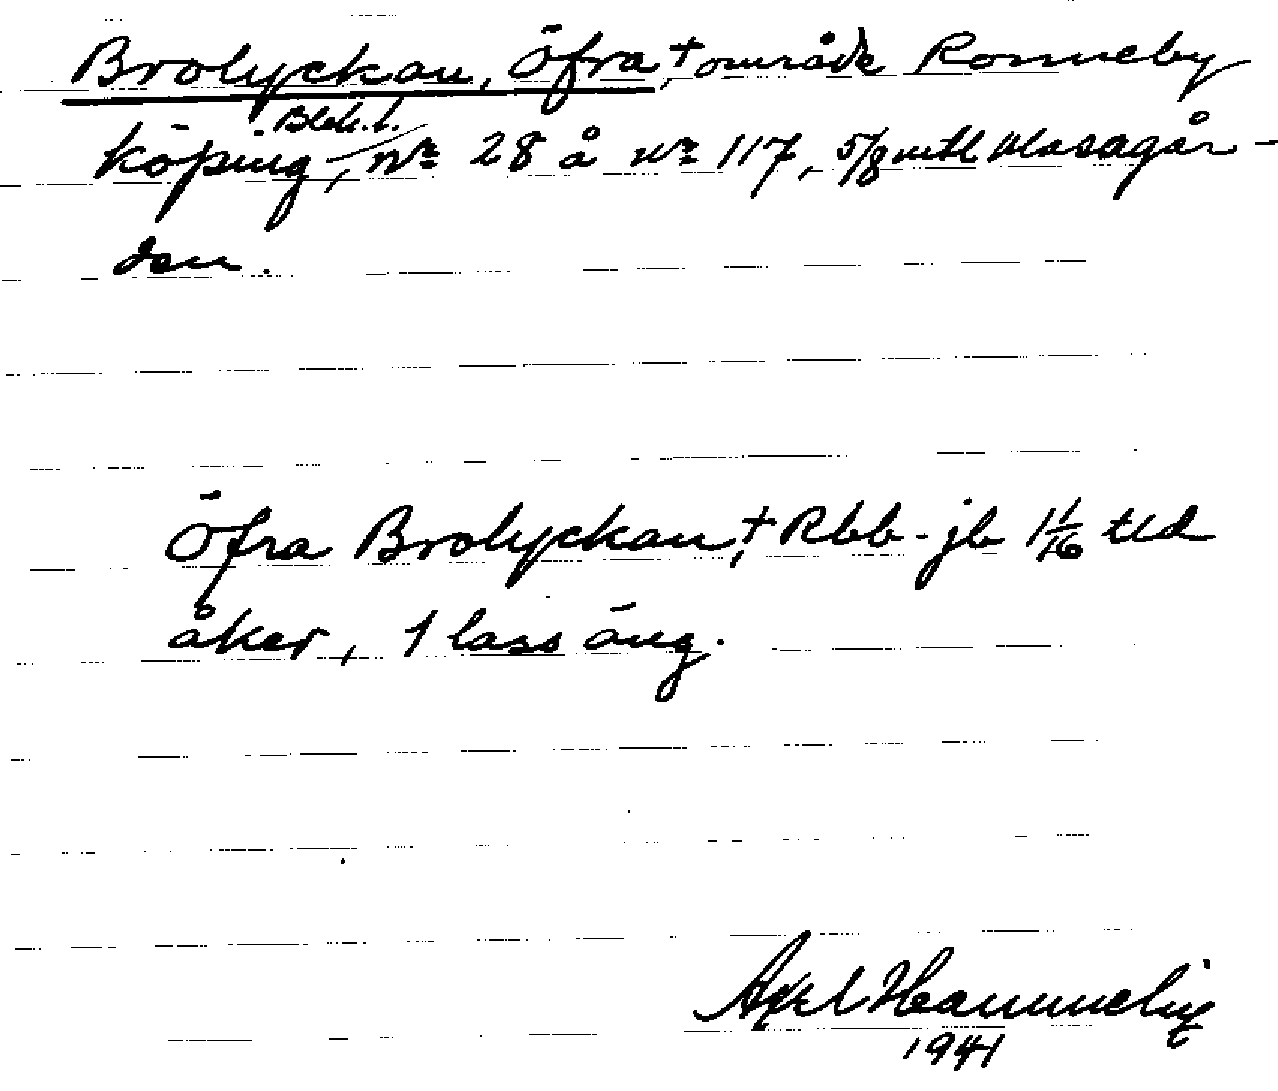 Brolyckan, Öfra,† område Ronneby
Blek. l.
köping, nr 28 å nr 117, 5/8 mtl Klasagår-
den.
Öfra Brolyckan,† Rbb-jb 1 1/16 tld
åker, 1 lass äng.
Axel Hammelig
1941